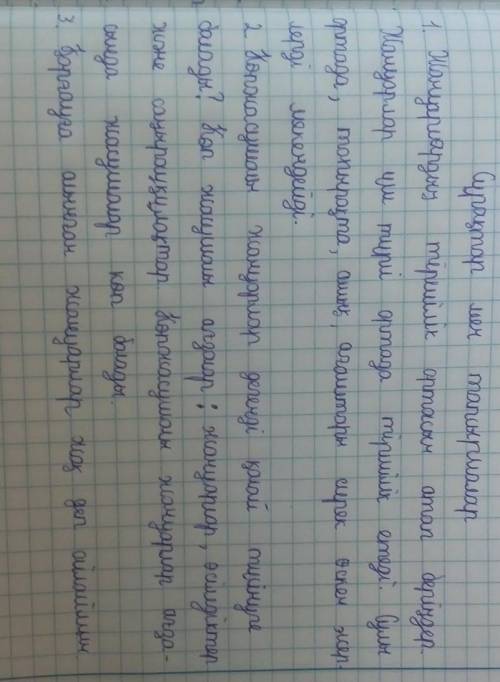 Сұрақтар мен тапсырмалар
1. Жануарлардың тіршілік ортасын атап беріңдер.
Жануарлар үш түрлі ортада тіршілік етеді. Сулы
ортада, топырақта, ашық, ағаштары сирек өскен жер-
лерді мекендейді.
2. Көпжасушалы жануарлар дегенді қалай түсінуге
болады? Көп жасушалы ағзалар: жануарлар, өсімдіктер
және саңырауқұлақтар. Көпжасушалы жануарлар ағза-
сында жасушалар көп болады.
3. барлауда жануарлар жоқ деп ойлаймын